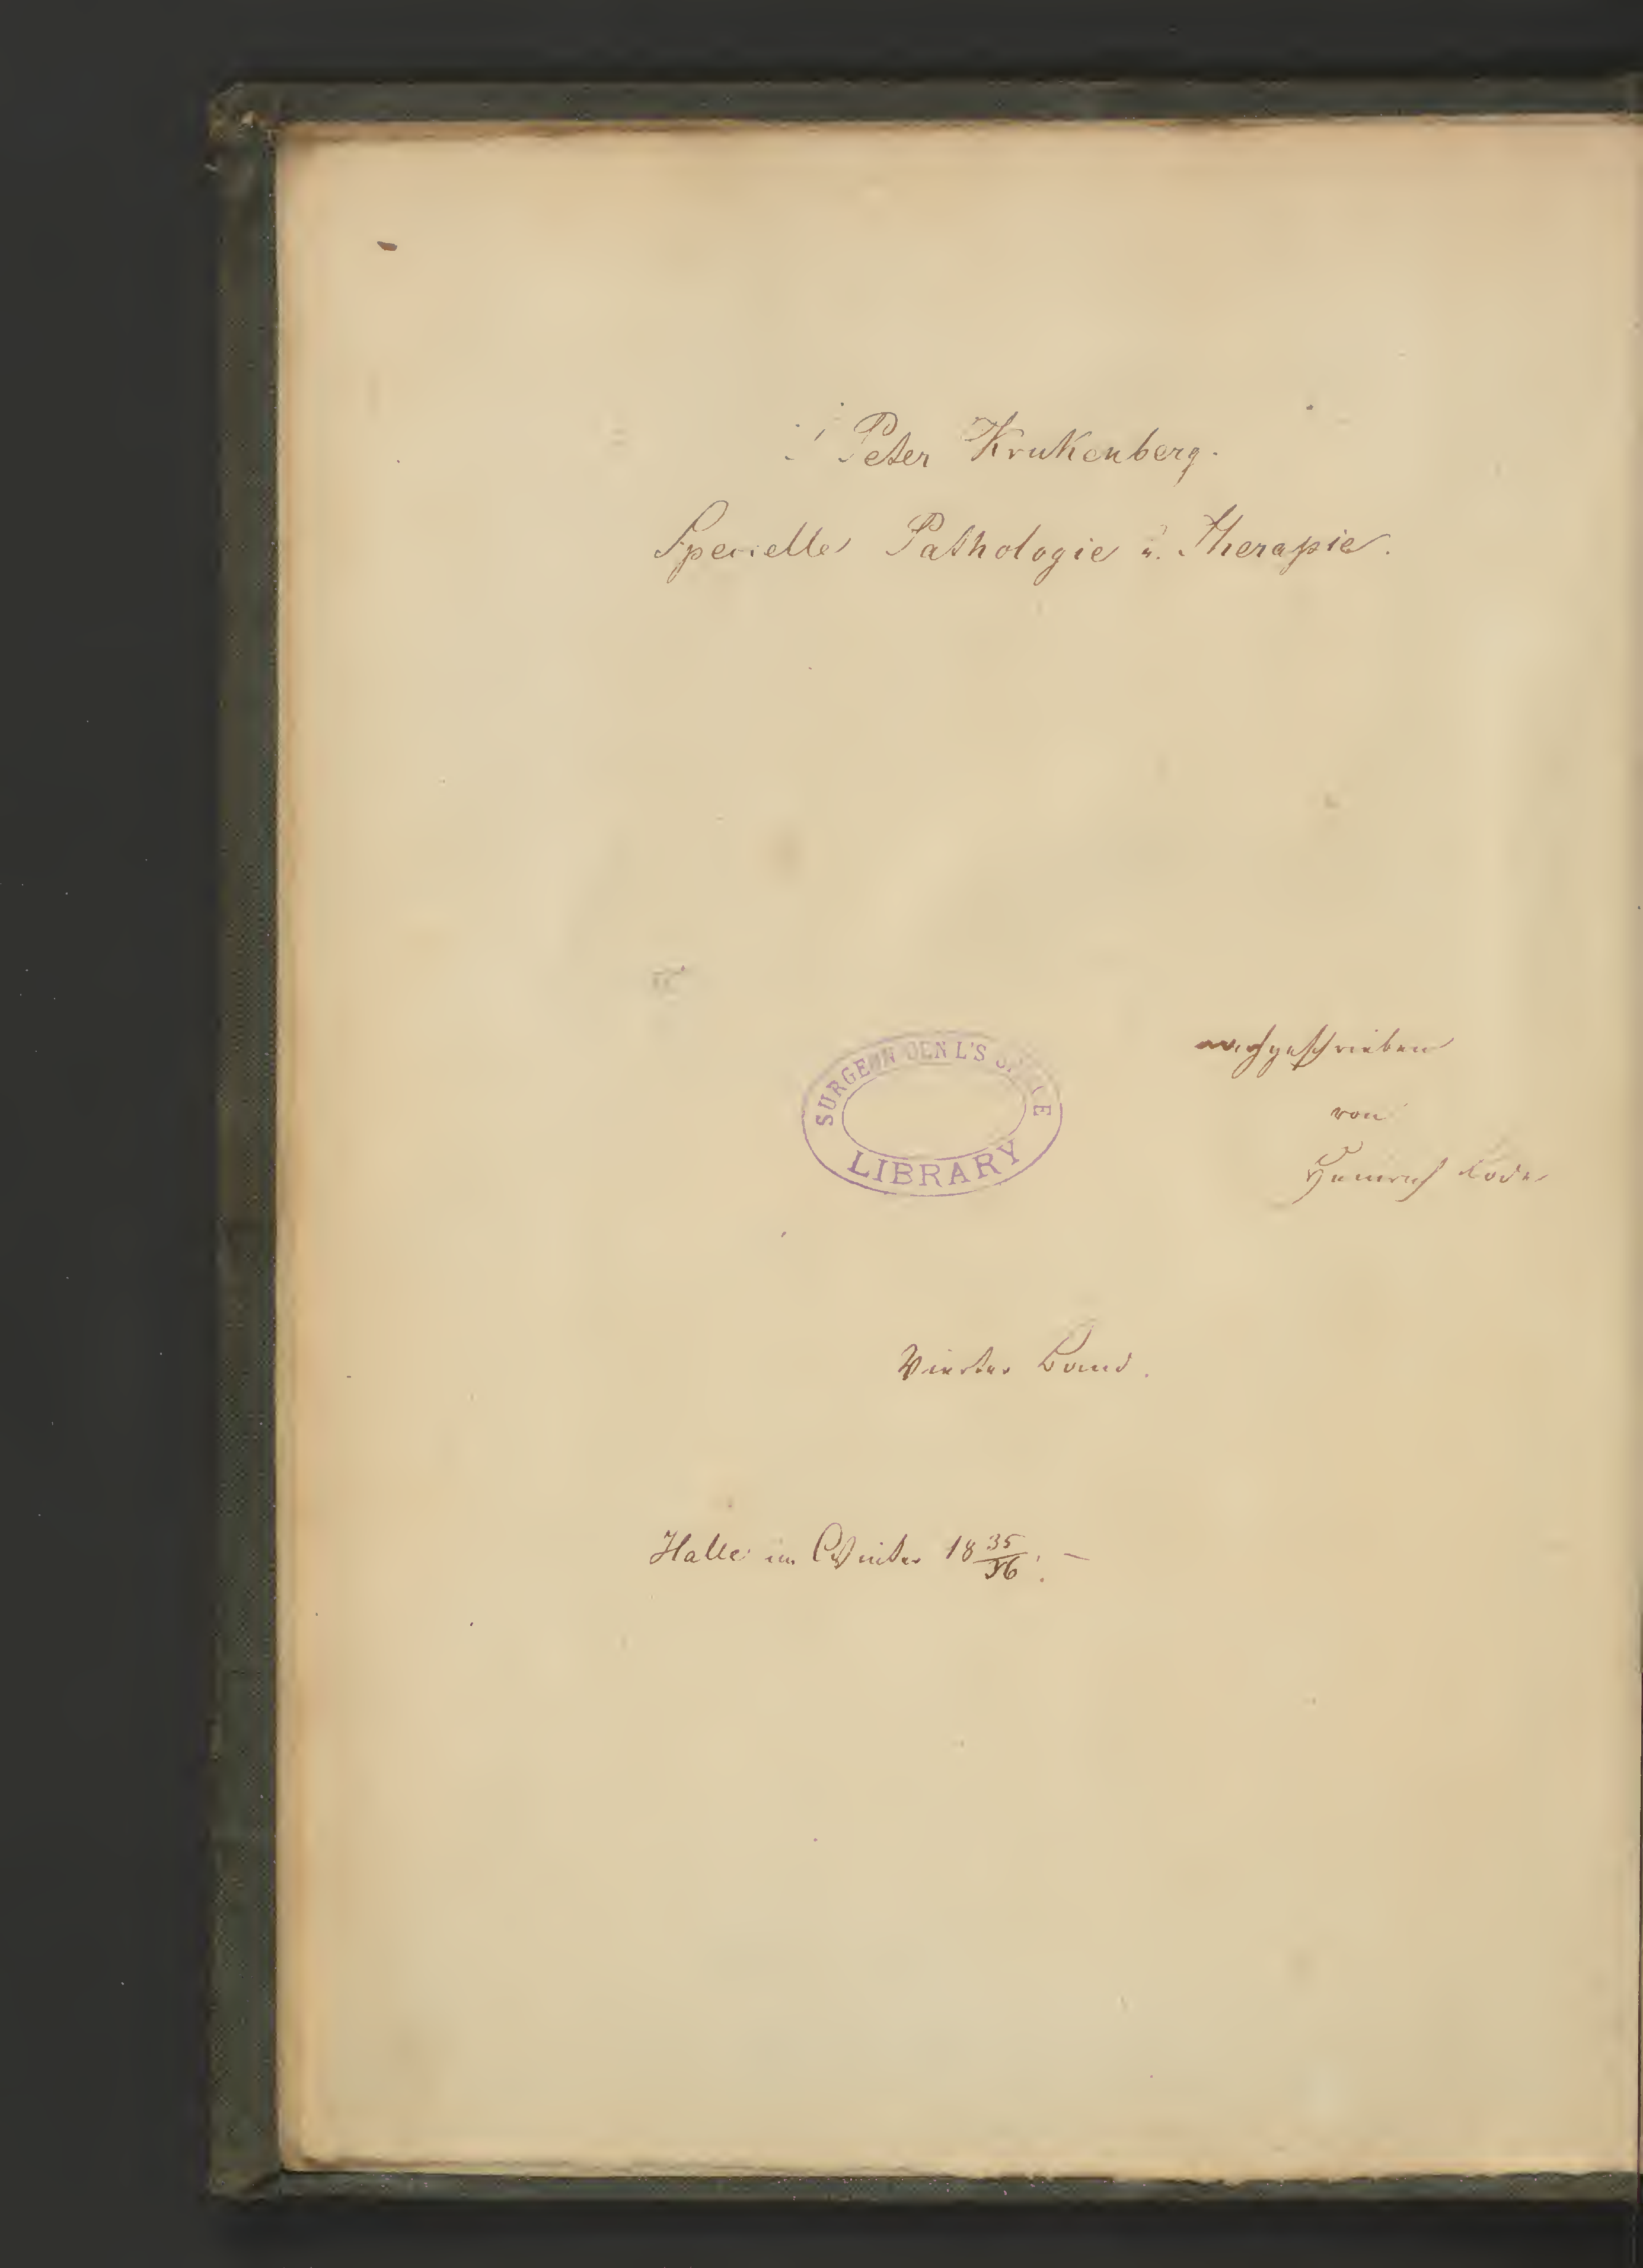 Peter Krukenberg.
Specielle Pathologie u. Therapie.
SURGEON GEN'L'S OFFICE
LIBRARY
nachgeschrieben
von
Heinrich
Vierter Band.
Halle im Winter 18 35/36. –